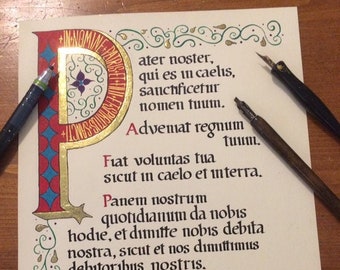 IN NOMINE PATRIS ET FILII ET SPIRITUS SANCTI
Pater noster,
qui es in caelis,
sanctificetur
nomen tuum.
Adveniat regnum
tuum.
Fiat voluntas tua
sicut in caelo et in terra.
Panem nostrum
quotidianum da nobis
hodie, et dimitte nobis debita
nostra, sicut et nos dimittimus
debitoribus nostris.